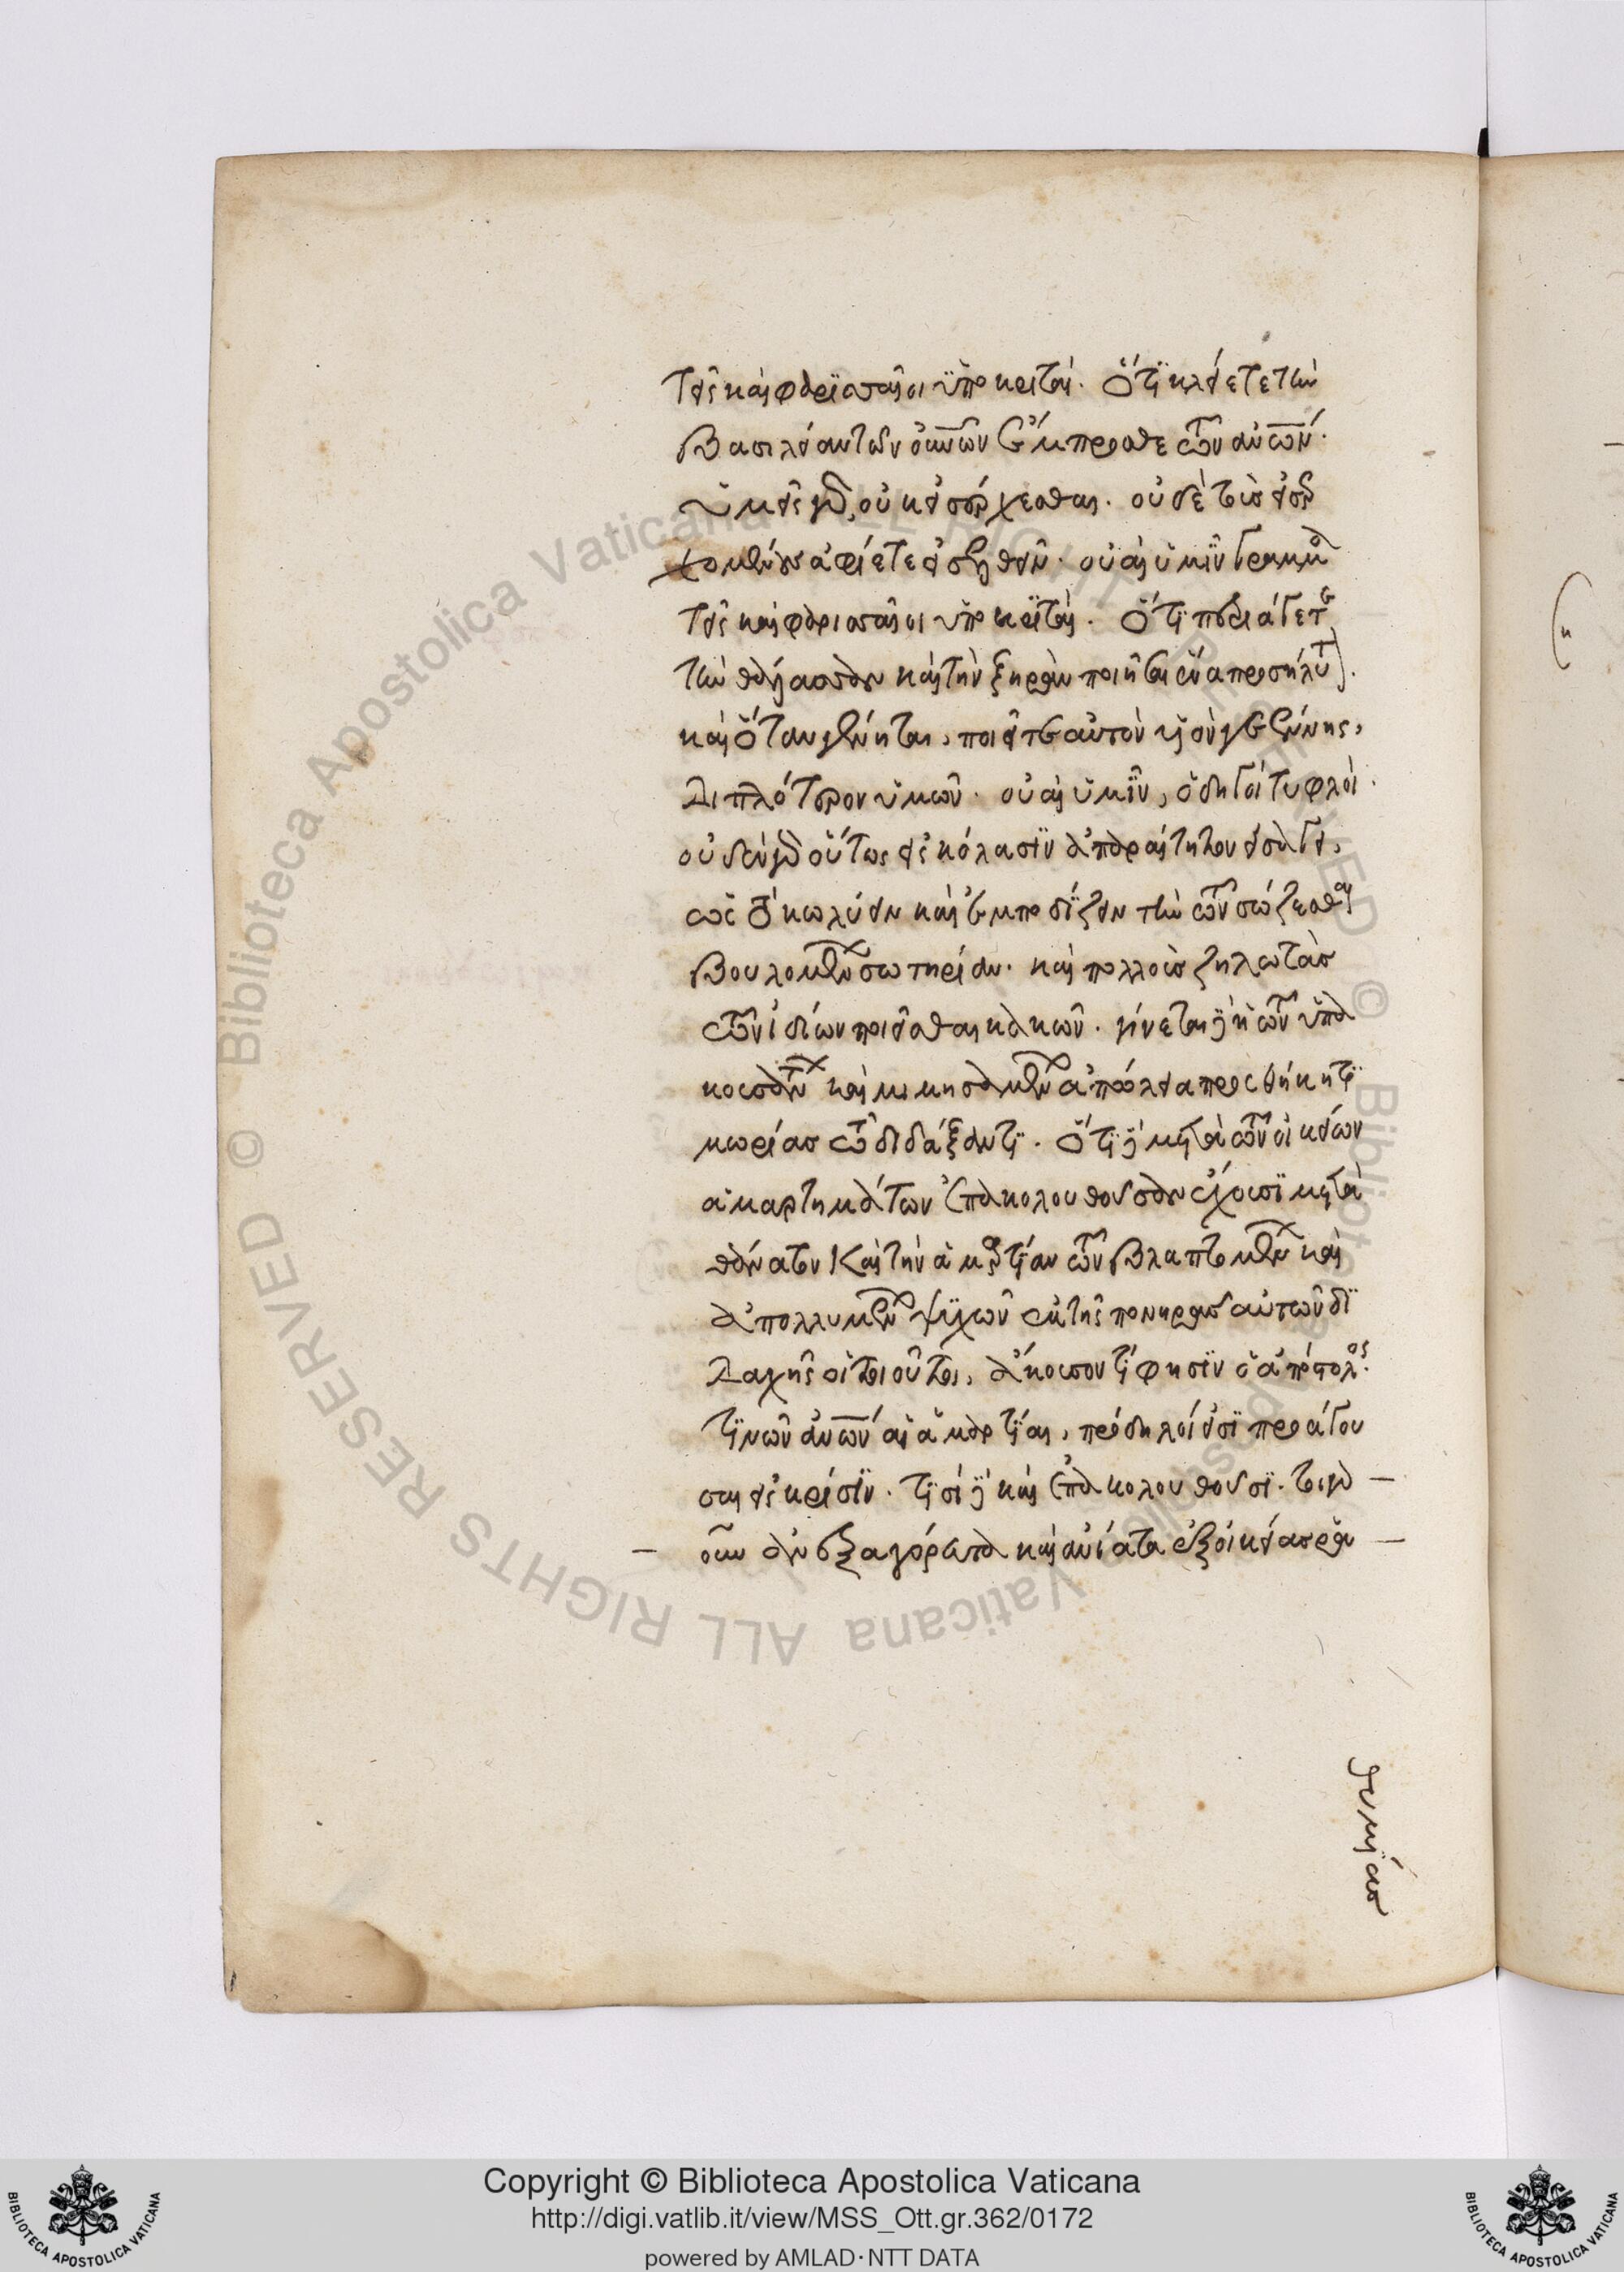 τεῖς καὶ φαρισαῖοι ὑποκριταί. ὅτι κλείετε τὴν
βασιλείαν τῶν οὐνῶν ἔμπροσθε τῶν ἀνων.
ὑμεῖς γὰρ, οὐκ εἰσέρχεσθαι. οὐδὲ τοὺς εἰσερ
χομένους ἀφίετε εἰσελθεῖν. οὐαὶ ὑμῖν γραμμα
τεῖς καὶ φαρισαῖοι ὑποκριταί. ὅτι περιάγετε
τὴν θάλασσαν καὶ τὴν ξηρὰν ποιῆσαι ἕνα προσήλυτον.
καὶ ὅταν γένηται, ποιεῖτε αὐτὸν υἱὸν γεέννης,
διπλότερον ὑμῶν. οὐαὶ ὑμῖν, ὁδηγοὶ τυφλοὶ.
οὐδὲν γὰρ οὕτως εἰς κόλασιν ἀπαραίτητον εἰσάγει,
ὡς τὸ κωλύειν καὶ ἐμποδίζειν τὴν τῶν σώζεσθαι
βουλομένων σωτηρίαν. καὶ πολλοὺς ζηλωτὰς
τῶν ἰδίων ποιεῖσθαι κακῶν. γίνεται γὰρ ἡ τῶν ὑπα
κουσάντων καὶ μιμησαμένων ἀπώλεια προσθήκη τι
μωρίας τῶ διδάξαντι. ὅτι γὰρ μετὰ τῶν οἰκείων
ἁμαρτημάτων ἐπακολουθοῦσαν ἔχουσι μετὰ
θάνατον καὶ τὴν ἁμαρτίαν τῶν βλαπτομένων καὶ
ἀπολλυμένων ψυχῶν ἐκ τῆς πονηρᾶς αὐτῶν δι
δαχῆς οἱ τοιοῦτοι, ἄκουσον τί φησιν ὁ ἀπόστολος.
τινῶν ἀνων αἱ ἁμαρτίαι, πρόδηλοί εἰσι προάγου
σαι εἰς κρίσιν. τισὶ δὲ καὶ ἐπακολουθοῦσι. τοιγαρ
οῦν ἀνεξαγόρευτα καὶ ἀνίατα ἐξ οἰκείας ῥᾳ
θυμίας
Copyright © Biblioteca Apostolica Vaticana
http://digi.vatlib.it/view/MSS_Ott.gr.362/0172
powered by AMLAD·NTT DATA